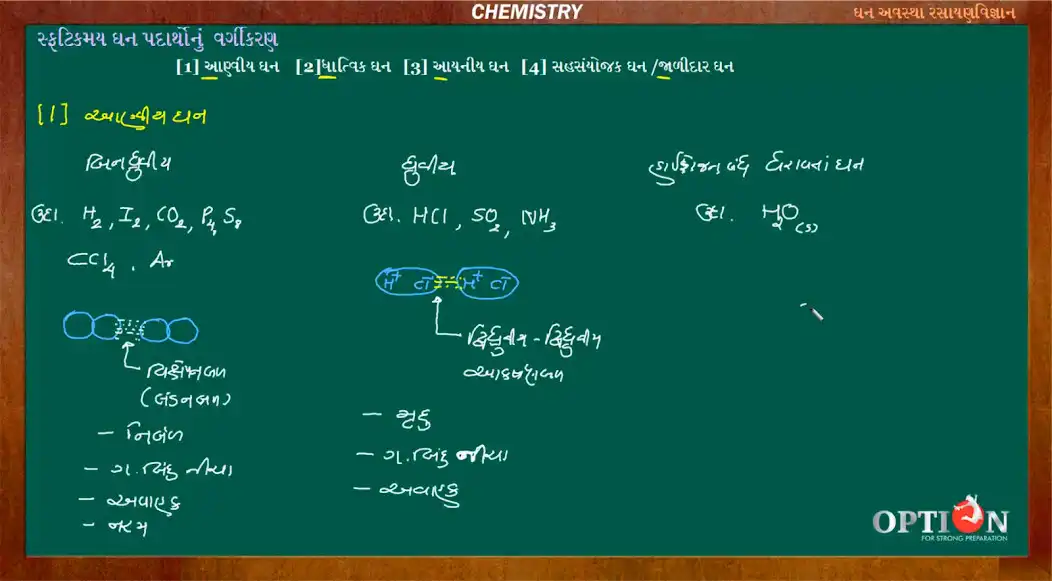 CHEMISTRY
ઘન અવસ્થા રસાયણવિજ્ઞાન
સ્ફટિકમય ઘન પદાર્થોનું વર્ગીકરણ
[1] આણ્વીય ઘન [2]ધાત્વિક ઘન [3] આયનીય ઘન [4] સહસંયોજક ઘન /જાળીદાર ઘન
[1] આણ્વીય ઘન
બિનધ્રુવીય
ધ્રુવીય
હાઈડ્રોજન બંધ ધરાવતાં ઘન
ઉદા. H₂, I₂, CO₂, P₄, S₈
CCl₄, Ar
ઉદા. HCl, SO₂, NH₃
ઉદા. H₂O(s)
H⁺ Cl⁻ H⁺ Cl⁻
દ્વિધ્રુવીય - દ્વિધ્રુવીય
આકર્ષણબળ
વિક્ષેપનબળ
(લંડનબળ)
- નિર્બળ
- ગ. બિંદુ નીચા
- અવાહક
- નરમ
- મૃદુ
- ગ. બિંદુ નીચા
- અવાહક
OPTION
FOR STRONG PREPARATION